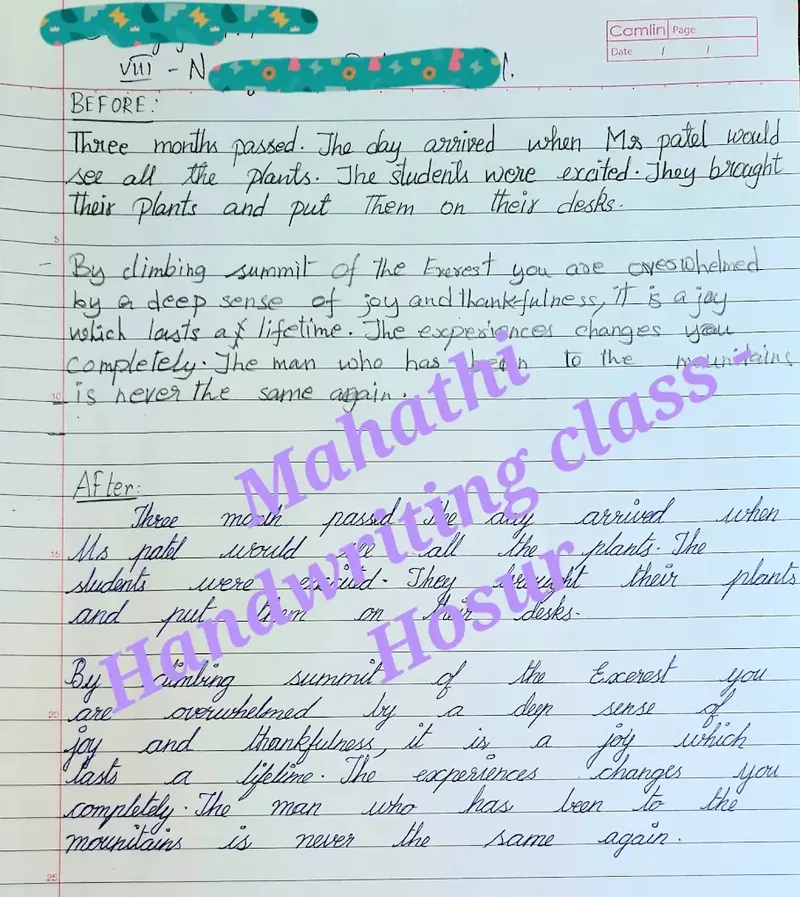 Camlin Page
Date / /
VIII - N
BEFORE:
Three months passed. The day arrived when Mrs patel would
see all the plants. The students were excited. They brought
their plants and put Them on their desks.
5
- By climbing summit of the Everest you are overwhelmed
by a deep sense of joy and thankfulness, it is a joy
which lasts a lifetime. The experiences changes you
completely. The man who has been to the mountains
10 is never the same again.
After:
Three month passed. The day arrived when
15 Ms patel would see all the plants. The
students were excited. They brought their plants
and put them on their desks.
By climbing summit of the Exerest you
20 are overwhelmed by a deep sense of
joy and thankfulness, it is a joy which
lasts a lifetime. The experiences changes you
completely. The man who has been to the
mounitains is never the same again.
25
Mahathi
Handwriting class -
Hosur